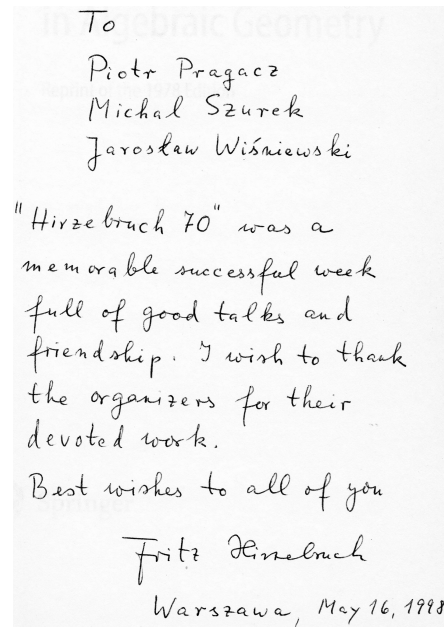 in Algebraic Geometry
To
Piotr Pragacz
Michal Szurek
Jarosław Wiśniewski
"Hirzebruch 70" was a
memorable successful week
full of good talks and
friendship. I wish to thank
the organizers for their
devoted work.
Best wishes to all of you
Springer
Fritz Hirzebruch
Warszawa, May 16, 1998